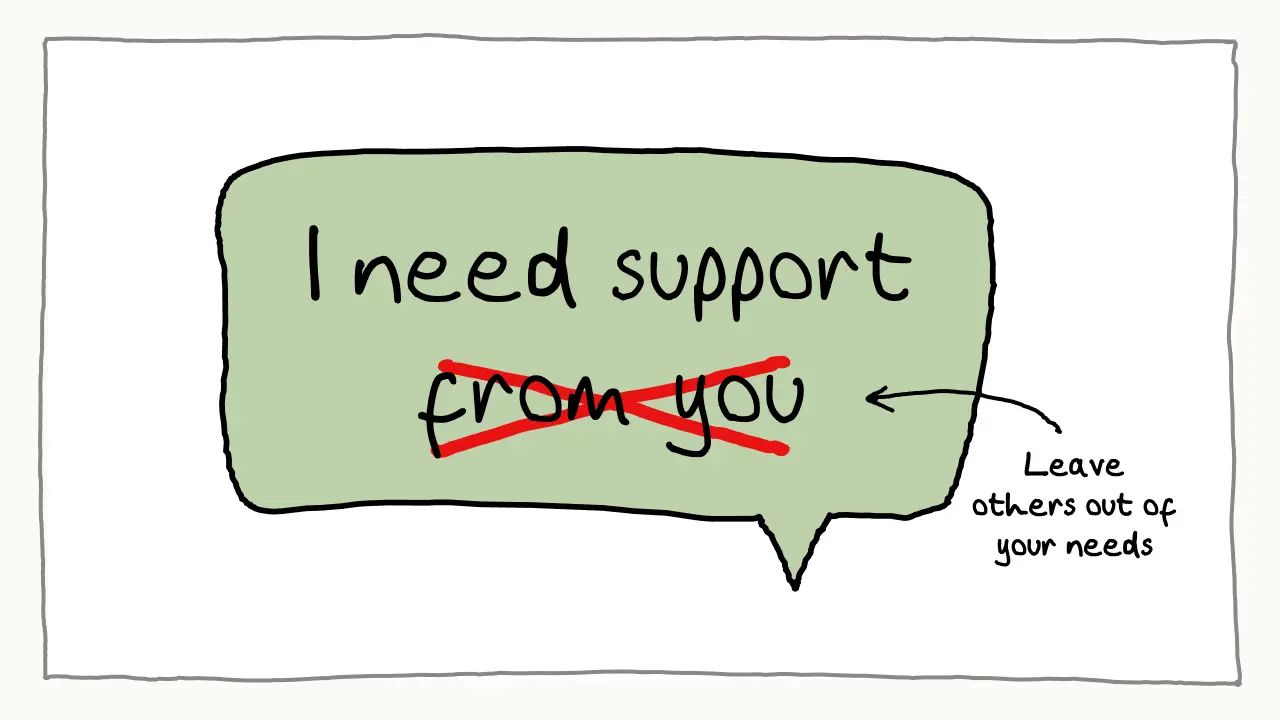 I need support
from you
Leave
others out of
your needs